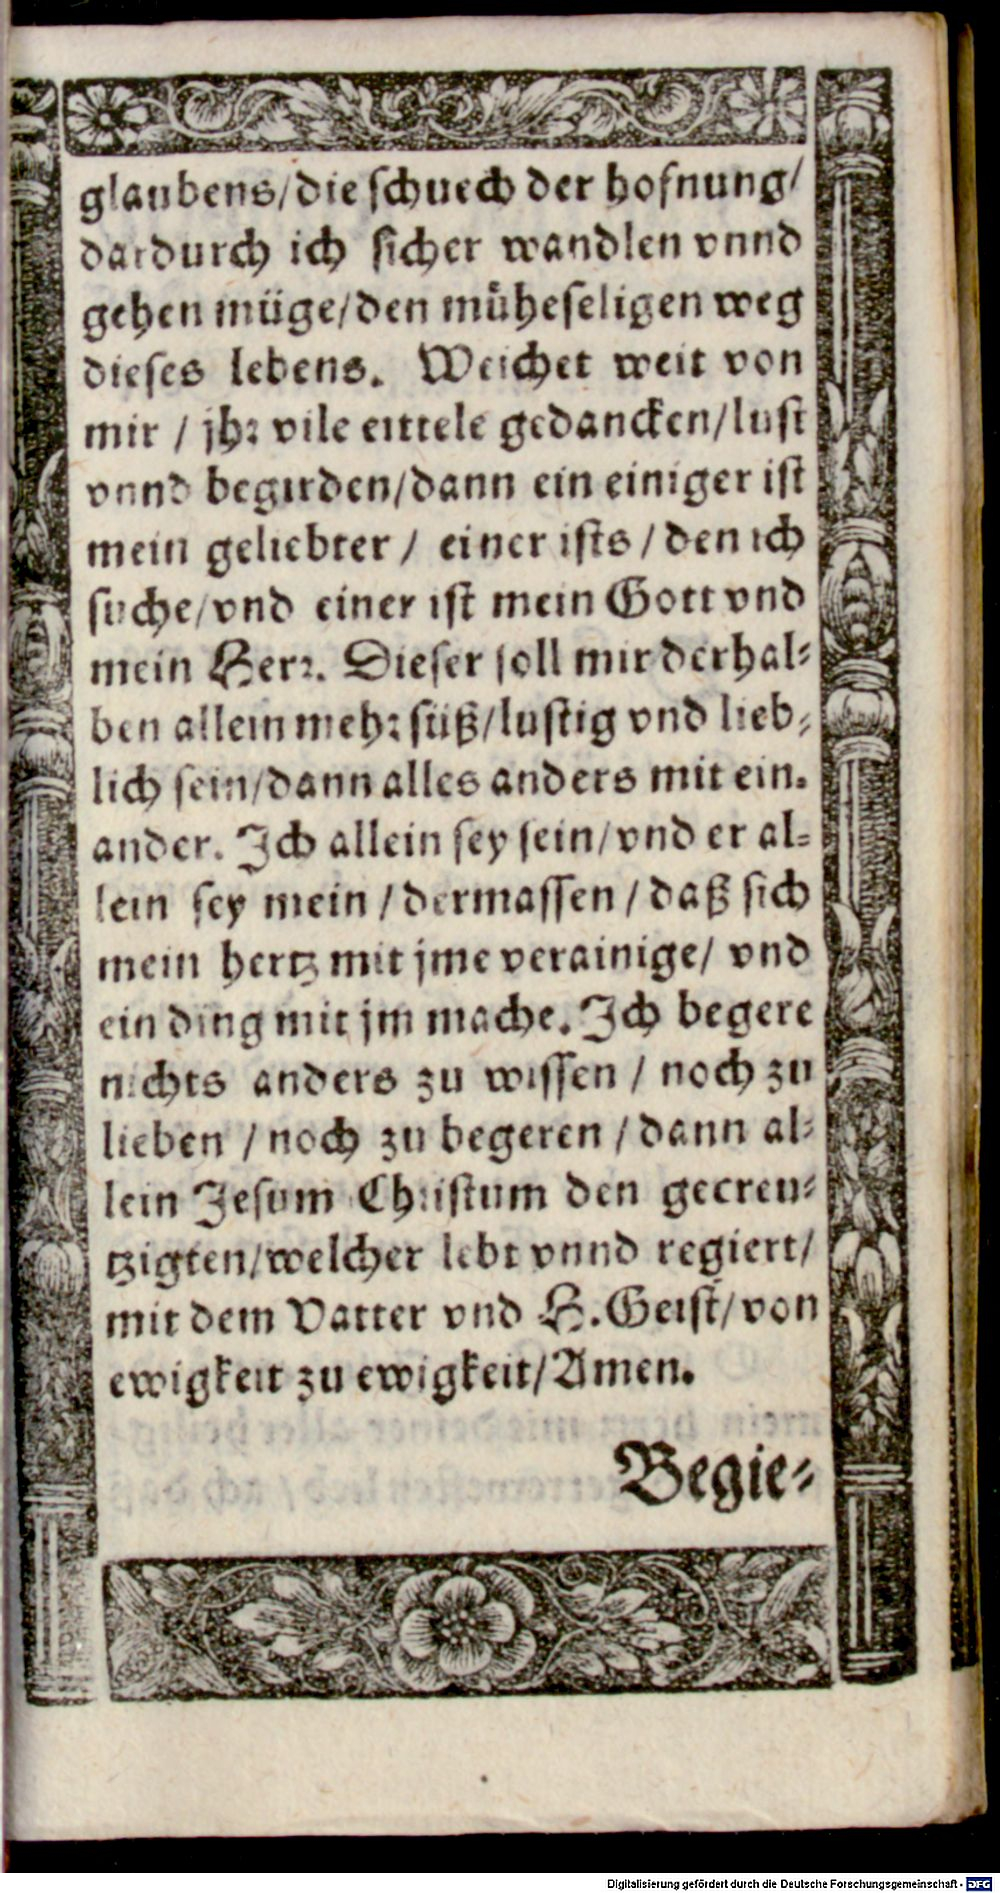 glaubens/die schuech der hofnung/
dardurch ich sicher wandlen vnnd
gehen müge/den müheseligen weg
dieses lebens. Weichet weit von
mir / jhr vile eittele gedancken/lust
vnnd begirden/dann ein einiger ist
mein geliebter / einer ists / den ich
suche/vnd einer ist mein Gott vnd
mein Herr. Dieser soll mir derhal-
ben allein mehr süß/lustig vnd lieb-
lich sein/dann alles anders mit ein.
ander. Ich allein sey sein/vnd er al-
lein sey mein / dermassen / daß sich
mein hertz mit jme verainige/ vnd
ein ding mit jm mache. Ich begere
nichts anders zu wissen / noch zu
lieben / noch zu begeren / dann al-
lein Jesum Christum den gecreu-
tzigten/welcher lebt vnnd regiert/
mit dem Vatter vnd H. Geist/von
ewigkeit zu ewigkeit/Amen.
Begie-
Digitalisierung gefördert durch die Deutsche Forschungsgemeinschaft - DFG